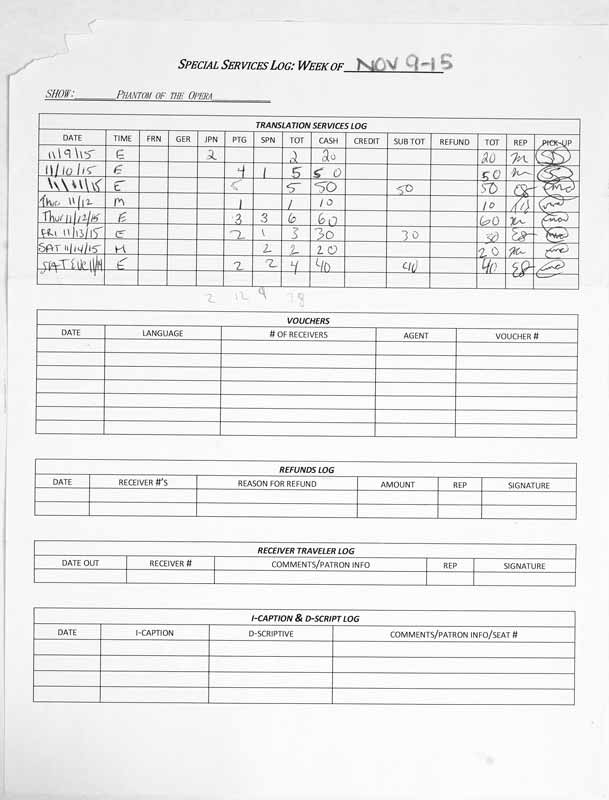 SPECIAL SERVICES LOG: WEEK OF NOV 9-15
SHOW: PHANTOM OF THE OPERA
TRANSLATION SERVICES LOG
DATE TIME FRN GER JPN PTG SPN TOT CASH CREDIT SUB TOT REFUND TOT REP PICK-UP
11/9/15 E 2 2 20 20
11/10/15 E 4 1 5 50 50
11/11/15 E 5 5 50 50 50 EB
Thu 11/12 M 1 1 10 10
Thur 11/12/15 E 3 3 6 60 60
FRI 11/13/15 E 2 1 3 30 30 30 EB
SAT 11/14/15 M 2 2 20 20
SAT EVE 11/14 E 2 2 4 40 40 40 EB
2 12 9 28
VOUCHERS
DATE LANGUAGE # OF RECEIVERS AGENT VOUCHER #
REFUNDS LOG
DATE RECEIVER #'S REASON FOR REFUND AMOUNT REP SIGNATURE
RECEIVER TRAVELER LOG
DATE OUT RECEIVER # COMMENTS/PATRON INFO REP SIGNATURE
I-CAPTION & D-SCRIPT LOG
DATE I-CAPTION D-SCRIPTIVE COMMENTS/PATRON INFO/SEAT #